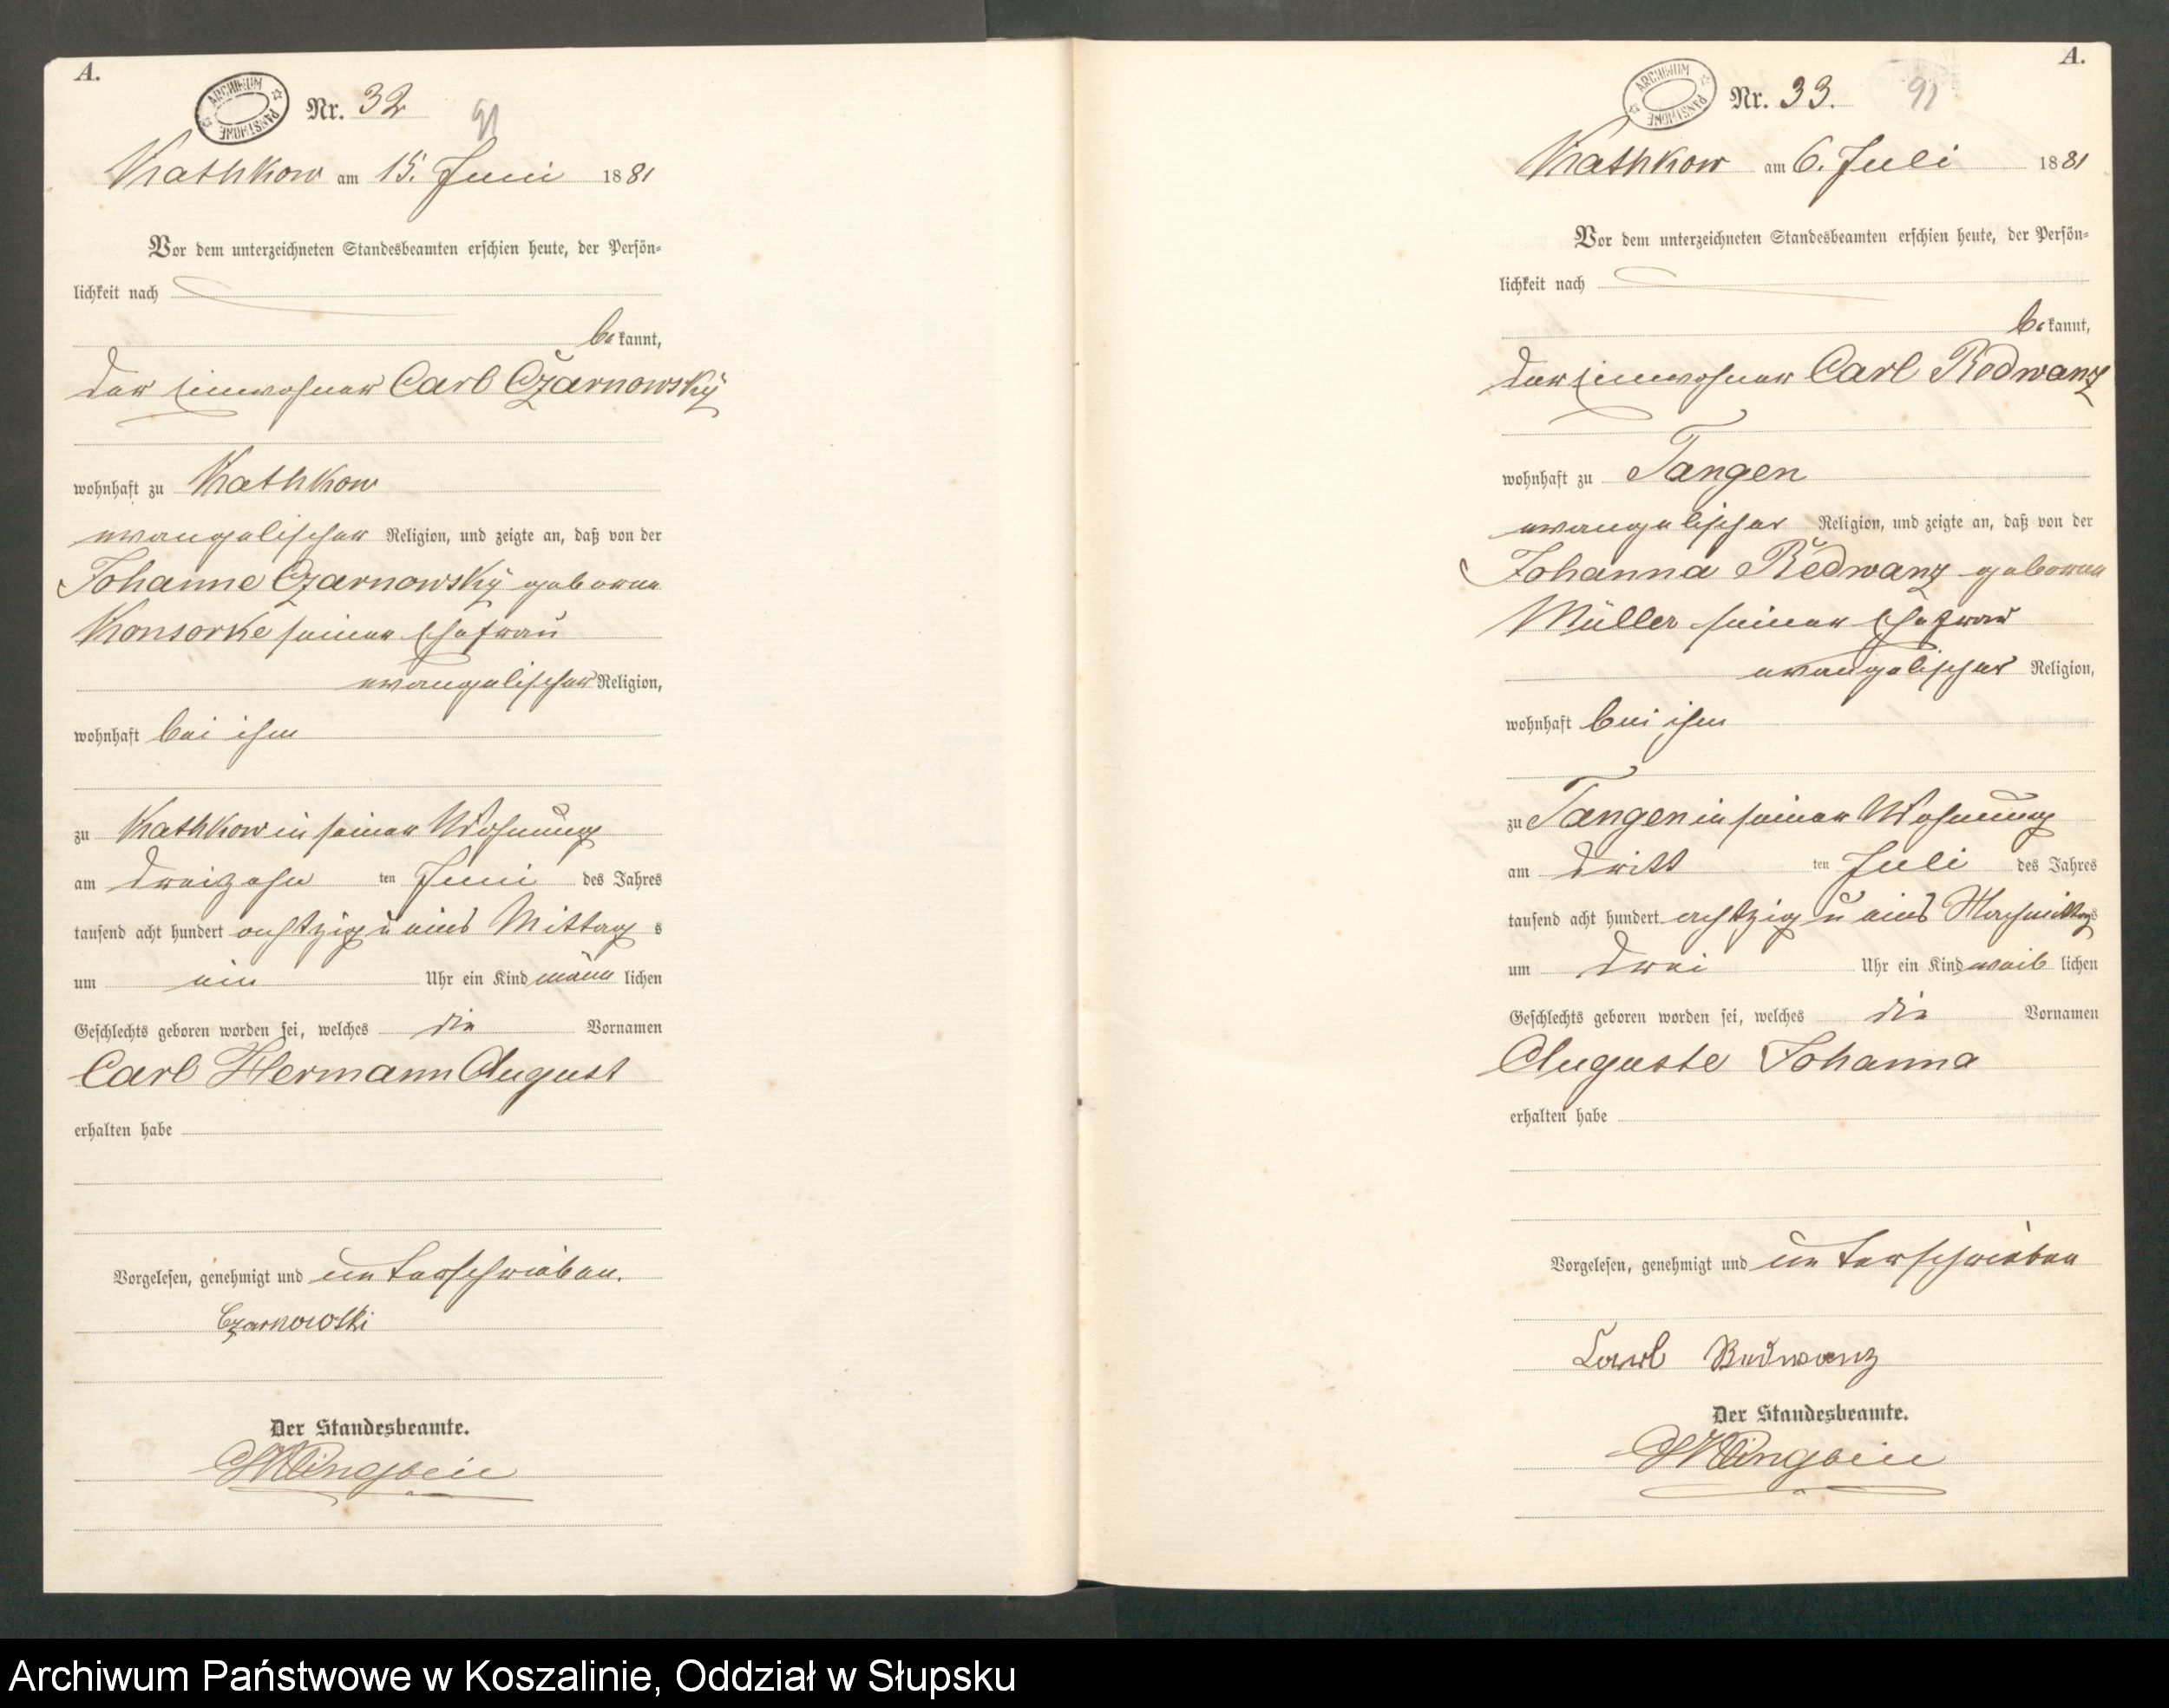 A.
ARCHIWUM PAŃSTWOWE
Nr. 32
91
Kathkow am 15. Juni 1881
Vor dem unterzeichneten Standesbeamten erschien heute, der Persön-
lichkeit nach
be kannt,
der Einwohner Carl Czarnowsky
wohnhaft zu Kathkow
evangelischer Religion, und zeigte an, daß von der
Johanne Czarnowsky geborene
Konsorke seiner Ehefrau
evangelischer Religion,
wohnhaft bei ihm
zu Kathkow in seiner Wohnung
am dreizehn ten Juni des Jahres
tausend acht hundert achtzig u eins Mittag s
um ein Uhr ein Kind männ lichen
Geschlechts geboren worden sei, welches die Vornamen
Carl Hermann August
erhalten habe
Vorgelesen, genehmigt und unterschrieben.
Czarnowski
Der Standesbeamte.
Klingbeil
A.
ARCHIWUM PAŃSTWOWE
Nr. 33.
91
Kathkow am 6. Juli 1881
Vor dem unterzeichneten Standesbeamten erschien heute, der Persön-
lichkeit nach
be kannt,
der Einwohner Carl Redwanz
wohnhaft zu Tangen
evangelischer Religion, und zeigte an, daß von der
Johanna Redwanz geborene
Müller seiner Ehefrau
evangelischer Religion,
wohnhaft bei ihm
zu Tangen in seiner Wohnung
am dritt ten Juli des Jahres
tausend acht hundert achtzig u eins Nachmittags
um drei Uhr ein Kind weib lichen
Geschlechts geboren worden sei, welches die Vornamen
Auguste Johanna
erhalten habe
Vorgelesen, genehmigt und unterschrieben
Carl Redwanz
Der Standesbeamte.
Klingbeil
Archiwum Państwowe w Koszalinie, Oddział w Słupsku